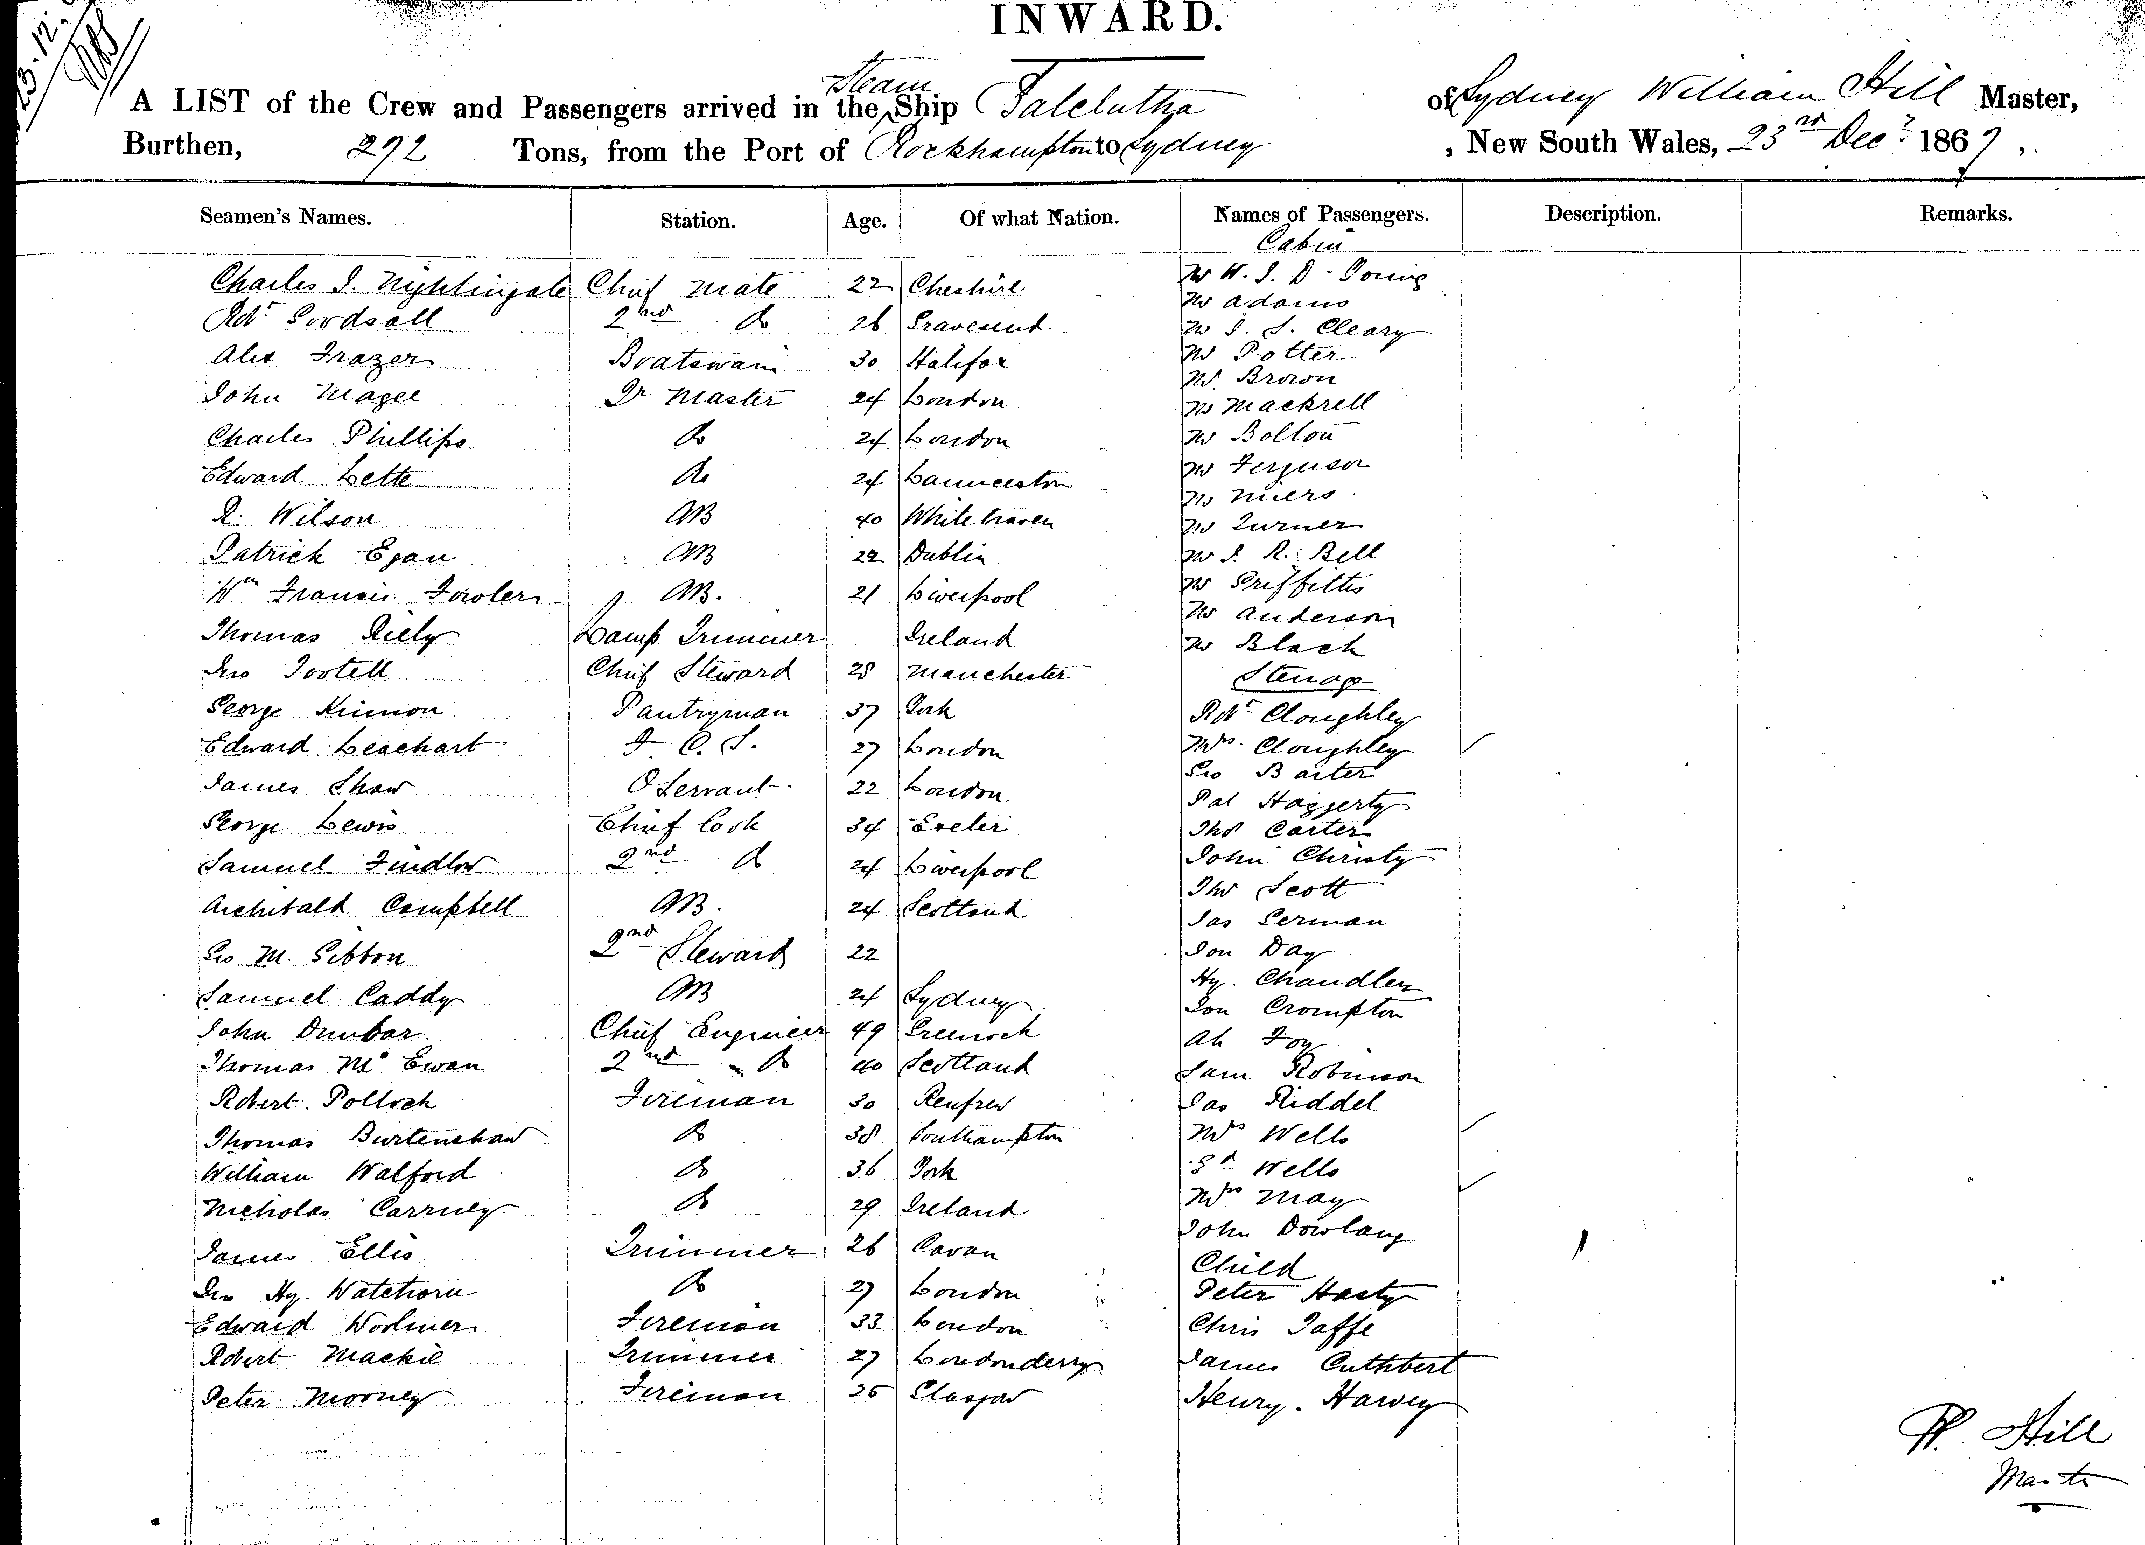 23.12.
INWARD.
A LIST of the Crew and Passengers arrived in the Steam Ship Balclutha of Sydney William Hill Master,
Burthen, 292 Tons, from the Port of Rockhampton to Sydney, New South Wales, 23rd Decr 1867.
Seamen's Names. Station. Age. Of what Nation. Names of Passengers. Description. Remarks.
Cabin
Charles J. Nightingale Chief Mate 22 Cheshire Mr W. J. D.
Mr Adams
Robt Goodsall 2nd Do 26 Gravesend Mr J. S. Cleary
Alex Frazer Boatswain 30 Halifax Mr Potter
Mr. Brown
John Magee Qr Master 24 London Mr Mackrell
Charles Phillips Do 24 London Mr Bolton
Edward Lette Do 24 Launceston Mr Ferguson
Mr Miers
R. Wilson AB 40 Whitehaven Mr Turner
Patrick Egan AB 22 Dublin Mr J. R. Bell
Wm Francis Fowler AB. 21 Liverpool Mr Griffiths
Mr Anderson
Thomas Riely Lamp Trimmer Ireland Mr Black
Jno Tootell Chief Steward 28 Manchester Steerage
George Kinnon Pantryman 37 York Robt Cloughley
Edward Leachart F. C. S. 27 London Mrs. Cloughley
Geo Baxter
James Shaw O Servant 22 London Pat Haggerty
George Lewis Chief Cook 34 Exeter Thos Carter
Samuel Findlow 2nd Do 24 Liverpool John Christy
Thos Scott
Archibald Campbell AB. 24 Scotland Jas German
Geo M. Gibbon 2nd Steward 22 Jon Day
Hy. Chandler
Samuel Caddy AB 24 Sydney Jon Crompton
John Dunbar Chief Engineer 49 Greenock Ah Foy
Thomas Mc Ewan 2nd Do 40 Scotland Sam Robinson
Robert Pollock Fireman 30 Renfrew Jas Riddel
Thomas Burtenshaw Do 38 Southampton Mrs Wells
William Walford Do 36 York Wells
Nicholas Carrney Do 29 Ireland Mrs May
John Dowlang
James Ellis Trimmer 26 Cavan Child
Jno Hy Watchorn Do 27 London Peter Hasty
Edward Woolmer Fireman 33 London Chris Taffe
Robert Mackie Trimmer 27 Londonderry James Cuthbert
Peter Mooney Fireman 25 Glasgow Henry. Harvey
W. Hill
Master